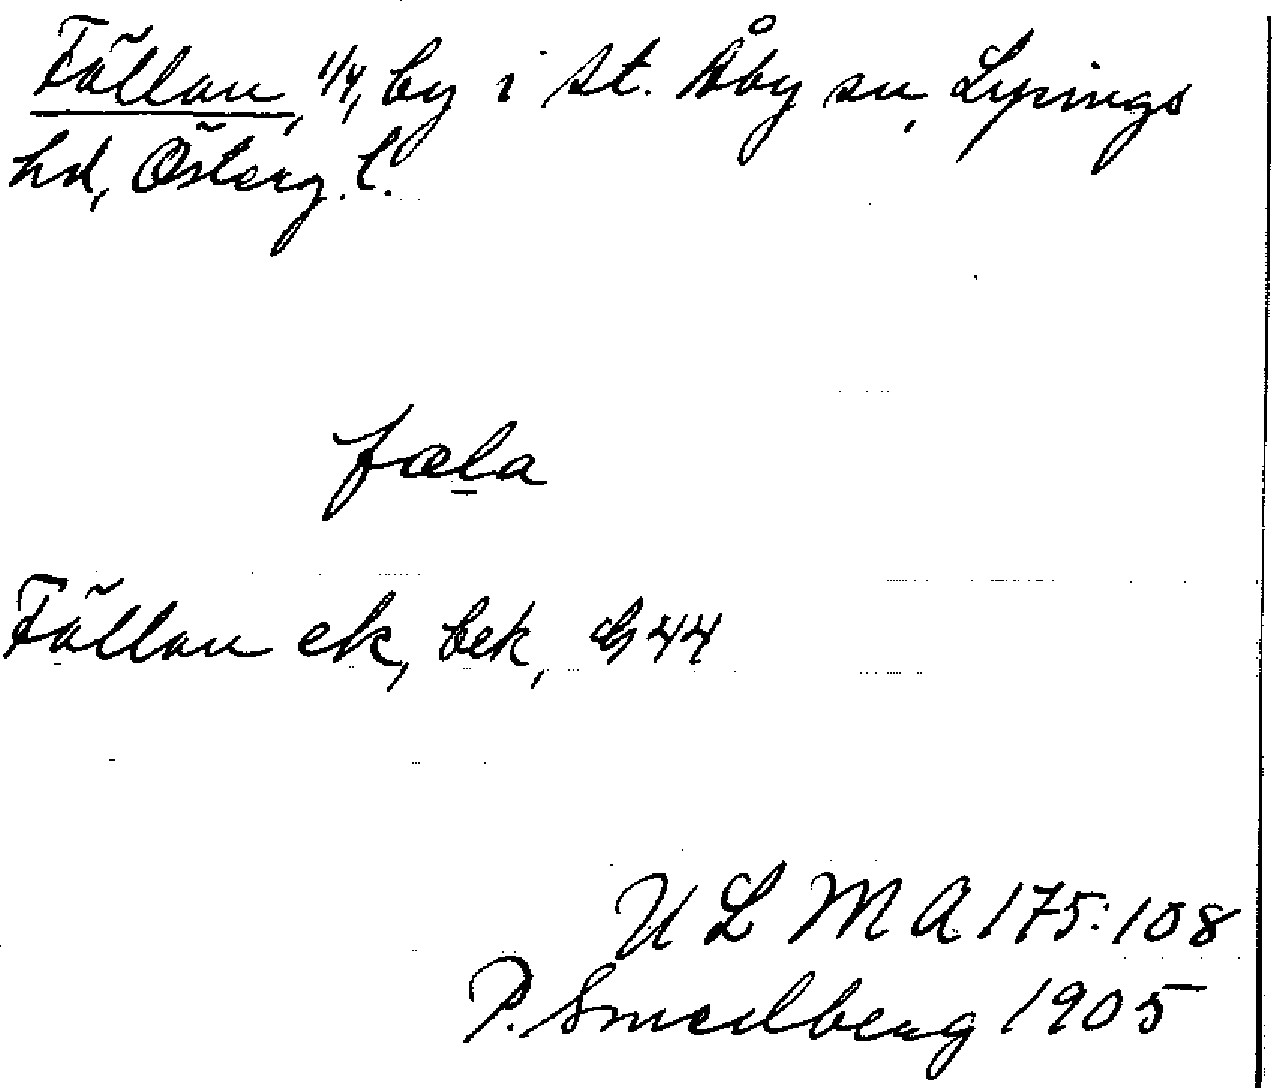 Fällan, 1/4, by i St. Åby sn, Lysings
hd, Österg. l.
fæla
Fällan ek, bek, G44
U L M A 175:108
P. Smedberg 1905